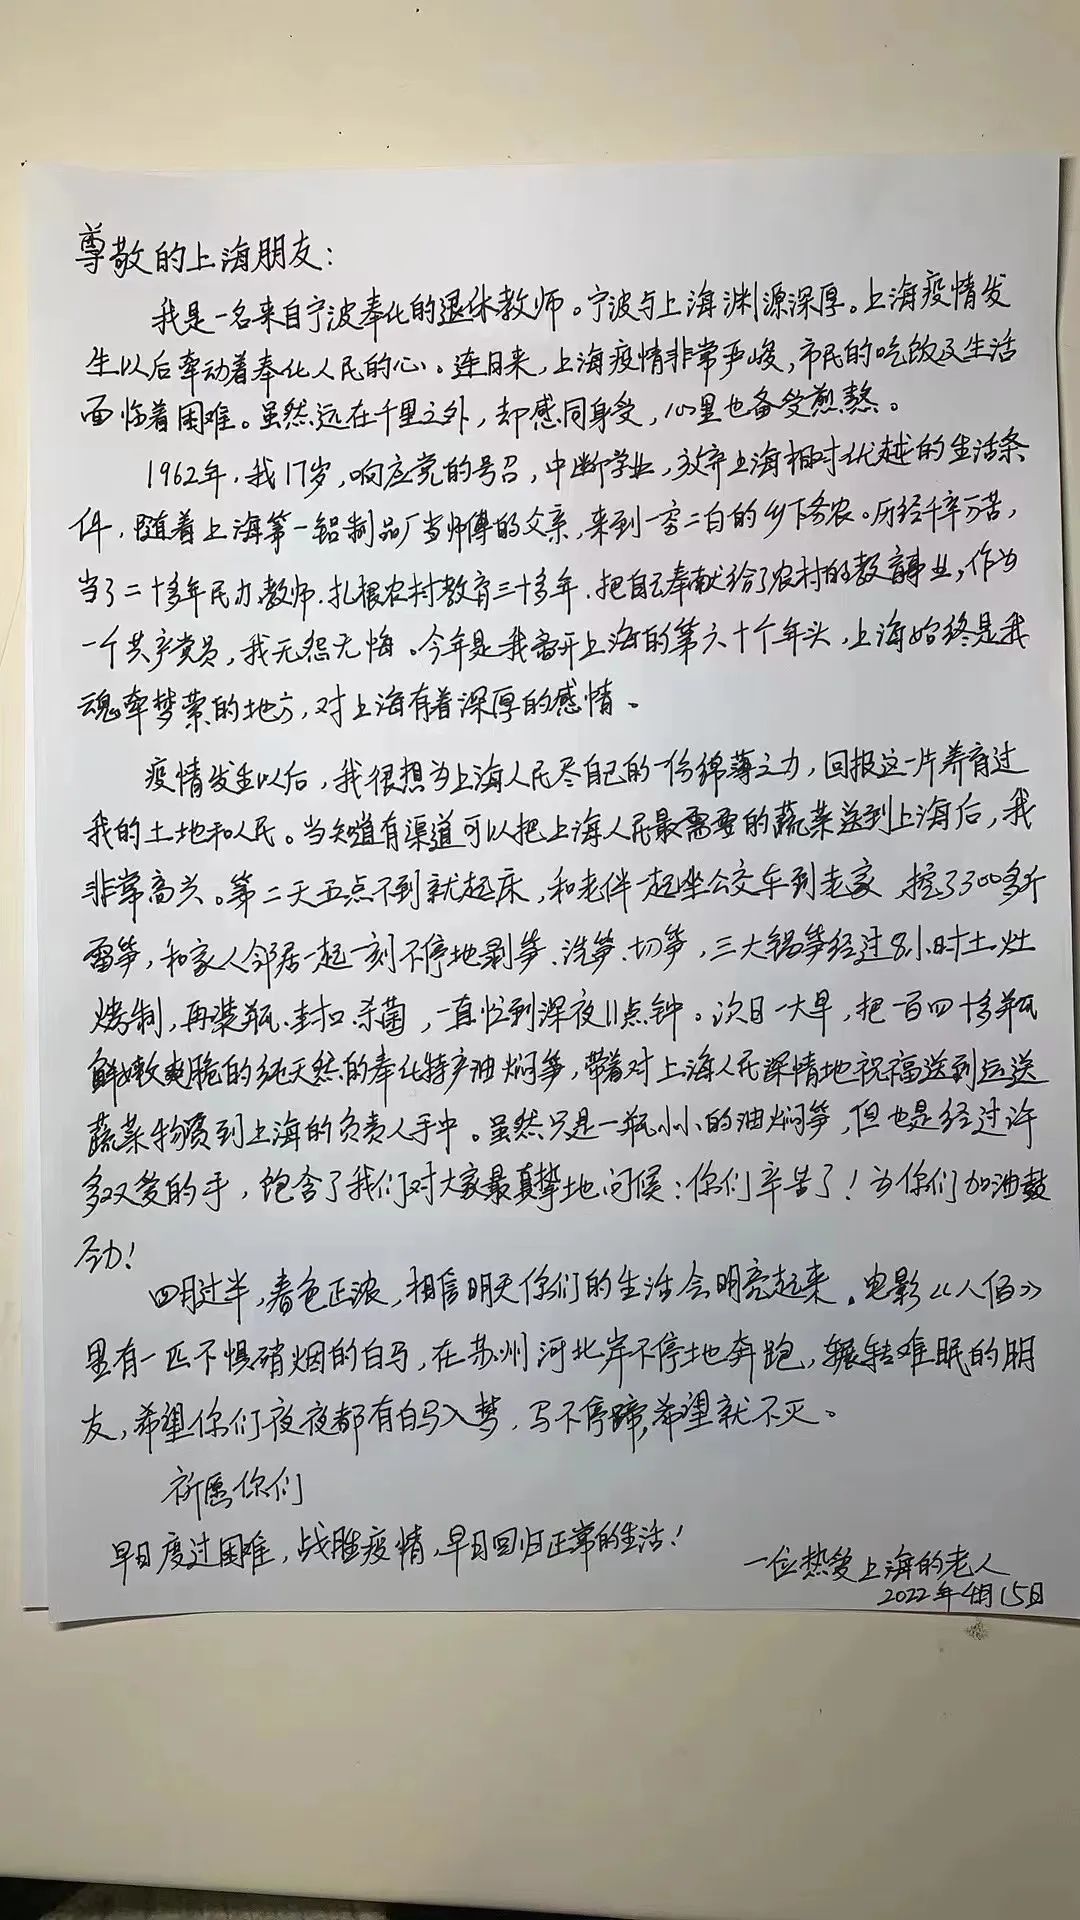 尊敬的上海朋友：
我是一名来自宁波奉化的退休教师。宁波与上海渊源深厚。上海疫情发
生以后牵动着奉化人民的心。连日来，上海疫情非常严峻，市民的吃饭及生活
面临着困难。虽然远在千里之外，却感同身受，心里也备受煎熬。
1962年，我17岁，响应党的号召，中断学业，放弃上海相对优越的生活条
件，随着上海第一铝制品厂当师傅的父亲，来到一穷二白的乡下务农。历经千辛万苦，
当了二十多年民办教师，扎根农村教育三十多年，把自己奉献给了农村的教育事业，作为
一个共产党员，我无怨无悔。今年是我离开上海的第六十个年头，上海始终是我
魂牵梦萦的地方，对上海有着深厚的感情。
疫情发生以后，我很想为上海人民尽自己的一份绵薄之力，回报这一片养育过
我的土地和人民。当知道有渠道可以把上海人民最需要的蔬菜送到上海后，我
非常高兴。第二天五点不到就起床，和老伴一起坐公交车到老家，挖了300多斤
雷笋，和家人邻居一起一刻不停地剥笋、洗笋、切笋，三大锅笋经过8小时土灶
烤制，再装瓶、封口、杀菌，一直忙到深夜11点钟。次日一大早，把一百四十多瓶
鲜嫩爽脆的纯天然的奉化特产油焖笋，带着对上海人民深情地祝福送到运送
蔬菜物资到上海的负责人手中。虽然只是一瓶小小的油焖笋，但也是经过许
多双爱的手，饱含了我们对大家最真挚地问候：你们辛苦了！为你们加油鼓
劲！
四月过半，春色正浓，相信明天你们的生活会明亮起来。电影《八佰》
里有一匹不惧硝烟的白马，在苏州河北岸不停地奔跑，辗转难眠的朋
友，希望你们夜夜都有白马入梦，马不停蹄，希望就不灭。
祈愿你们
早日度过困难，战胜疫情，早日回归正常的生活！
一位热爱上海的老人
2022年4月15日